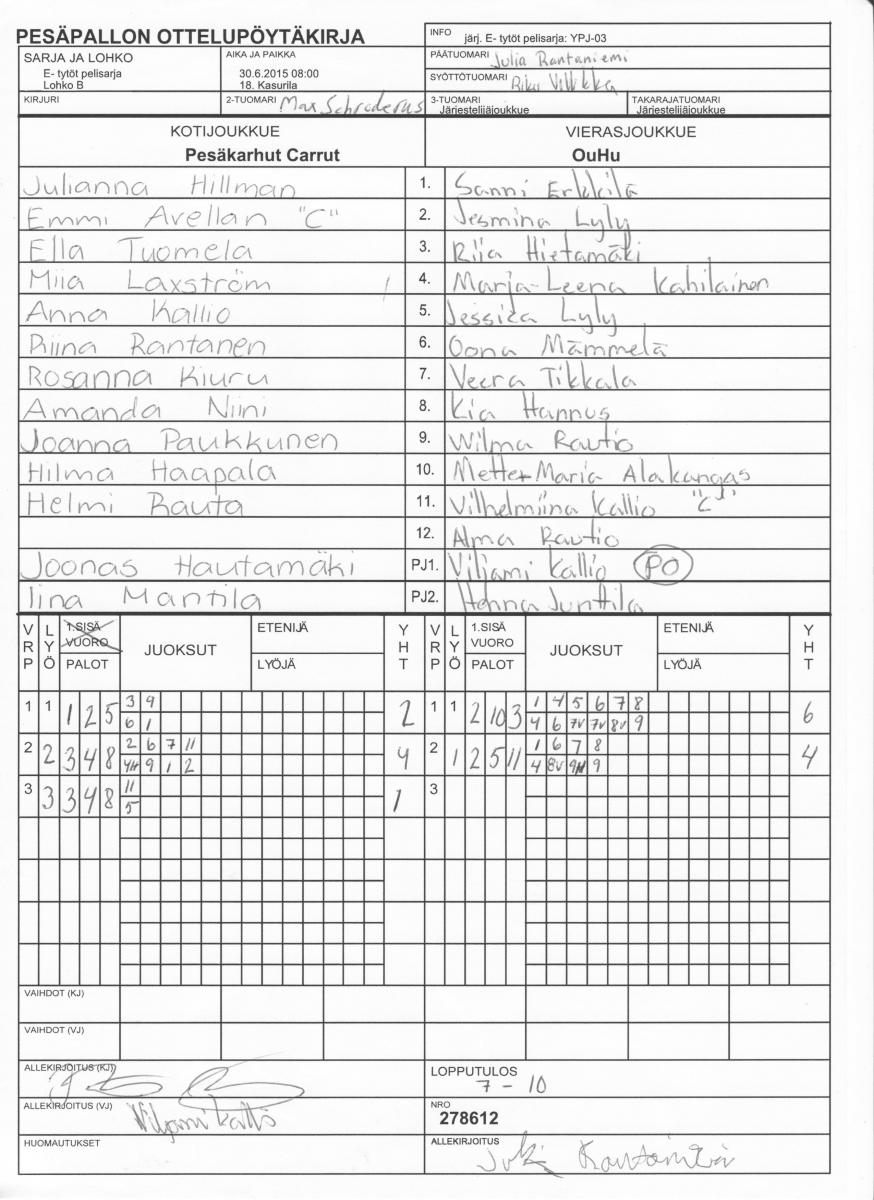 PESÄPALLON OTTELUPÖYTÄKIRJA
INFO järj. E- tytöt pelisarja: YPJ-03
SARJA JA LOHKO
E- tytöt pelisarja
Lohko B
AIKA JA PAIKKA
30.6.2015 08:00
18. Kasurila
PÄÄTUOMARI Julia Rantaniemi
SYÖTTÖTUOMARI Riku
KIRJURI
2-TUOMARI Max Schroderus
3-TUOMARI
Järjestelijäjoukkue
TAKARAJATUOMARI
Järjestelijäjoukkue
KOTIJOUKKUE
Pesäkarhut Carrut
VIERASJOUKKUE
OuHu
Julianna Hillman 1. Sanni Erkkilä
Emmi Avellan "C" 2. Jesmina Lyly
Ella Tuomela 3. Riia Hietamäki
Miia Laxström 4. Marja-Leena Kahilainen
Anna Kallio 5. Jessica Lyly
Riina Rantanen 6. Oona Mämmelä
Rosanna Kiuru 7. Veera Tikkala
Amanda Niini 8. Kia Hannus
Joanna Paukkunen 9. Wilma Rautio
Hilma Haapala 10. Mette-Maria Alakangas
Helmi Rauta 11. Vilhelmiina Kallio "C"
12. Alma Rautio
Joonas Hautamäki PJ1. Viljami Kallio PO
Iina Mantila PJ2. Henna Junttila
VRP LYÖ 1.SISÄ VUORO PALOT JUOKSUT ETENIJÄ LYÖJÄ YHT VRP LYÖ 1.SISÄ VUORO PALOT JUOKSUT ETENIJÄ LYÖJÄ YHT
1 1 1 2 5 3 9 2 1 1 2 10 3 1 4 5 6 7 8 6
6 1 4 6 7V 7V 8V 9
2 2 3 4 8 2 6 7 11 4 2 1 2 5 11 1 6 7 8 4
9 1 2 4 8V 9
3 3 3 4 8 11 1 3
5
VAIHDOT (KJ)
VAIHDOT (VJ)
ALLEKIRJOITUS (KJ)
LOPPUTULOS
7 - 10
ALLEKIRJOITUS (VJ) Viljami Kallio
NRO
278612
HUOMAUTUKSET
ALLEKIRJOITUS